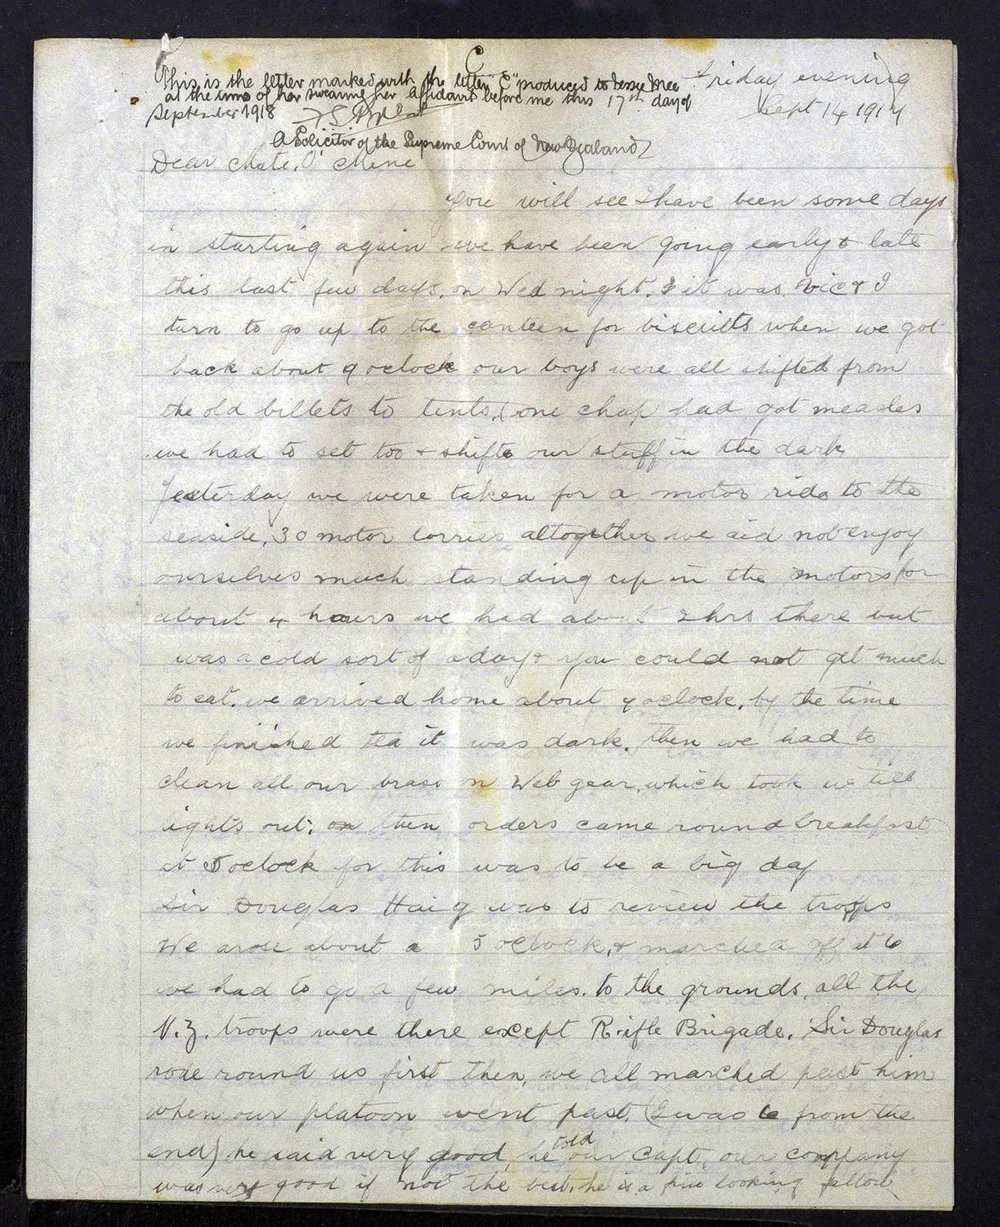 C
This is the letter marked with the letter "C" produced to Jessie Mee
at the time of her swearing her Affidavit before me this 17th day of
September 1918
A Solicitor of the Supreme Court of New Zealand
Friday evening
Sept 14 1917
Dear Mate, O' Mine
You will see I have been some days
in starting again we have been going early & late
this last few days, on Wed night, & it was Vic & I
turn to go up to the canteen for biscuits when we got
back about 9 oclock our boys were all shifted from
the old billets to tents, (one chap had got measles
we had to set too & shift our stuff in the dark
Yesterday we were taken for a motor ride to the
seaside, 30 motor lorries altogether we did not enjoy
ourselves much standing up in the motors for
about 4 hours we had about 2 hrs there but
was a cold sort of a day & you could not get much
to eat. we arrived home about 7 oclock, by the time
we finished tea it was dark. then we had to
clean all our brass on Web gear, which took us till
lights out; then orders came round breakfast
at 5 oclock for this was to be a big day
Sir Douglas Haig was to review the troops
We arose about a 5 oclock, & marched off at 6
we had to go a few miles. to the grounds, all the
N.Z. troops were there except Rifle Brigade. Sir Douglas
rode round us first then, we all marched past him
when our platoon went past, (I was 6 from the
end) he said very good, he told our Capt, our company
was very good if not the best, he is a fine looking fellow